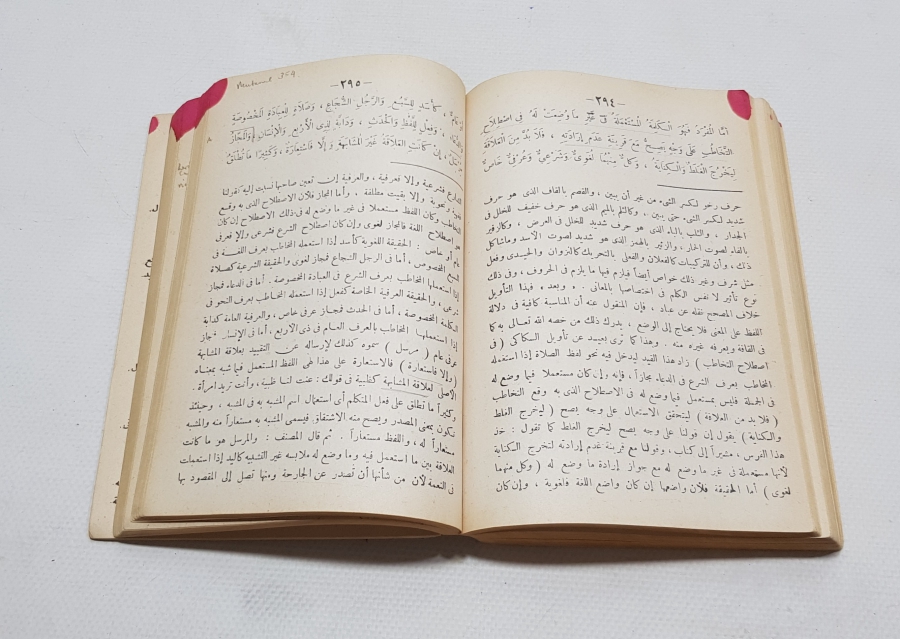 -٢٩٤-
أَمَّا الْمُفْرَدُ فَهُوَ الْكَلِمَةُ الْمُسْتَعْمَلَةُ فِى غَيْرِ مَا وُضِعَتْ لَهُ فِى اصْطِلَاحِ
التَّخَاطُبِ عَلَى وَجْهٍ يَصِحُّ مَعَ قَرِينَةِ عَدَمِ إِرَادَتِهِ ، فَلَا بُدَّ مِنَ الْعَلَاقَةِ
لِيَخْرُجَ الْغَلَطُ وَالْكِنَايَةُ ، وَكُلٌّ مِنْهُمَا لُغَوِىٌّ وَشَرْعِىٌّ وَعُرْفِىٌّ خَاصٌّ
حرف رخو لكسر الشىء من غير أن يبين ، والقصم بالقاف الذى هو حرف
شديد لكسر الشىء حتى يبين ، وكالثلم بالميم الذى هو حرف خفيف للخلل فى
الجدار ، والثلب بالباء الذى هو حرف شديد للخلل فى العرض ، وكالزفير
بالفاء لصوت الحمار ، والزئير بالهمز الذى هو شديد لصوت الأسد وما شاكل
ذلك ، وأن للتركيبات كالفعلان والفعلى بالتحريك كالنزوان والحيدى وفعل
مثل شرف وغير ذلك خواص أيضا فيلزم فيها ما يلزم فى الحروف ، وفى ذلك
نوع تأثير لأنفس الكلم فى اختصاصها بالمعانى . وبعد ، فهذا التأويل
خلاف المصحح نقله عن عباد ، فإن المنقول عنه أن المناسبة كافية فى دلالة
اللفظ على المعنى فلا يحتاج إلى الوضع ، يدرك ذلك من خصه الله تعالى به كما
فى القافة ويعرفه غيره منه . وهذا كما ترى بعيد عن تأويل السكاكى ( فى
اصطلاح التخاطب ) زاد هذا القيد ليدخل فيه نحو لفظ الصلاة إذا استعمله
المخاطب بعرف الشرع فى الدعاء مجازاً ، فإنه وإن كان مستعملا فيما وضع له
فى الجملة فليس بمستعمل فيما وضع له فى الاصطلاح الذى به وقع التخاطب
( فلا بد من العلاقة ) ليتحقق الاستعمال على وجه يصح ( ليخرج الغلط
والكناية ) يقول إن قولنا على وجه يصح ليخرج الغلط كما تقول : خذ
هذا الفرس ، مشيراً إلى كتاب ، وقولنا مع قرينة عدم إرادته لتخرج الكناية
لأنها مستعملة فى غير ما وضع له مع جواز إرادة ما وضع له ( وكل منهما
لغوى ) أما الحقيقة فلأن واضعها إن كان واضع اللغة فلغوية ، وإن كان
-٢٩٥-
كَأَسَدٍ لِلسَّبُعِ وَالرَّجُلِ الشُّجَاعِ ، وَصَلَاةٍ لِلْعِبَادَةِ الْمَخْصُوصَةِ
، وَفِعْلٍ لِلَّفْظِ وَالْحَدَثِ ، وَدَابَّةٍ لِذِى الْأَرْبَعِ وَالْإِنْسَانِ وَالْمَجَازُ
، إِنْ كَانَتِ الْعَلَاقَةُ غَيْرَ الْمُشَابَهَةِ وَإِلَّا فَاسْتِعَارَةٌ ، وَكَثِيرًا مَا تُطْلَقُ
الشارع فشرعية وإلا فعرفية ، والعرفية إن تعين صاحبها نسبت إليه كقولنا
نحوية وإلا بقيت مطلقة ، وأما المجاز فلأن الاصطلاح الذى به وقع
التخاطب وكان اللفظ مستعملا فى غير ما وضع له فى ذلك الاصطلاح إن كان
هو اصطلاح اللغة فالمجاز لغوى وإن كان اصطلاح الشرع فشرعى وإلا فعرفى
عام أو خاص : الحقيقة اللغوية كأسد إذا استعمله المخاطب بعرف اللغة فى
السبع المخصوص ، أما فى الرجل الشجاع فمجاز لغوى والحقيقة الشرعية كصلاة
إذا استعملها المخاطب بعرف الشرع فى العبادة المخصوصة . أما فى الدعاء فمجاز
شرعى ، والحقيقة العرفية الخاصة كفعل إذا استعمله المخاطب بعرف النحو فى
الكلمة المخصوصة ، أما فى الحدث فمجاز عرفى خاص ، والعرفية العامة كدابة
إذا استعملها المخاطب بالعرف العام فى ذى الأربع ، أما فى الإنسان فمجاز
عرفى عام ( مرسل ) سموه كذلك لإرساله عن التقييد بعلاقة المشابهة
( وإلا فاستعارة ) فالاستعارة على هذا هى اللفظ المستعمل فيما شبه بمعناه
الأصلى لعلاقة المشابهة كظبية فى قولك : عنت لنا ظبية ، وأنت تريد امرأة .
وكثيراً ما تطلق على فعل المتكلم أى استعمال اسم المشبه به فى المشبه ، وحينئذ
تكون بمعنى المصدر ويصح منه الاشتقاق فيسمى المشبه به مستعاراً منه والمشبه
مستعاراً له ، واللفظ مستعاراً . ثم قال المصنف : والمرسل هو ما كانت
العلاقة بين ما استعمل فيه وما وضع له ملابسه غير التشبيه كاليد إذا استعملت
فى النعمة لأن من شأنها أن تصدر عن الجارحة ومنها تصل إلى المقصود بها